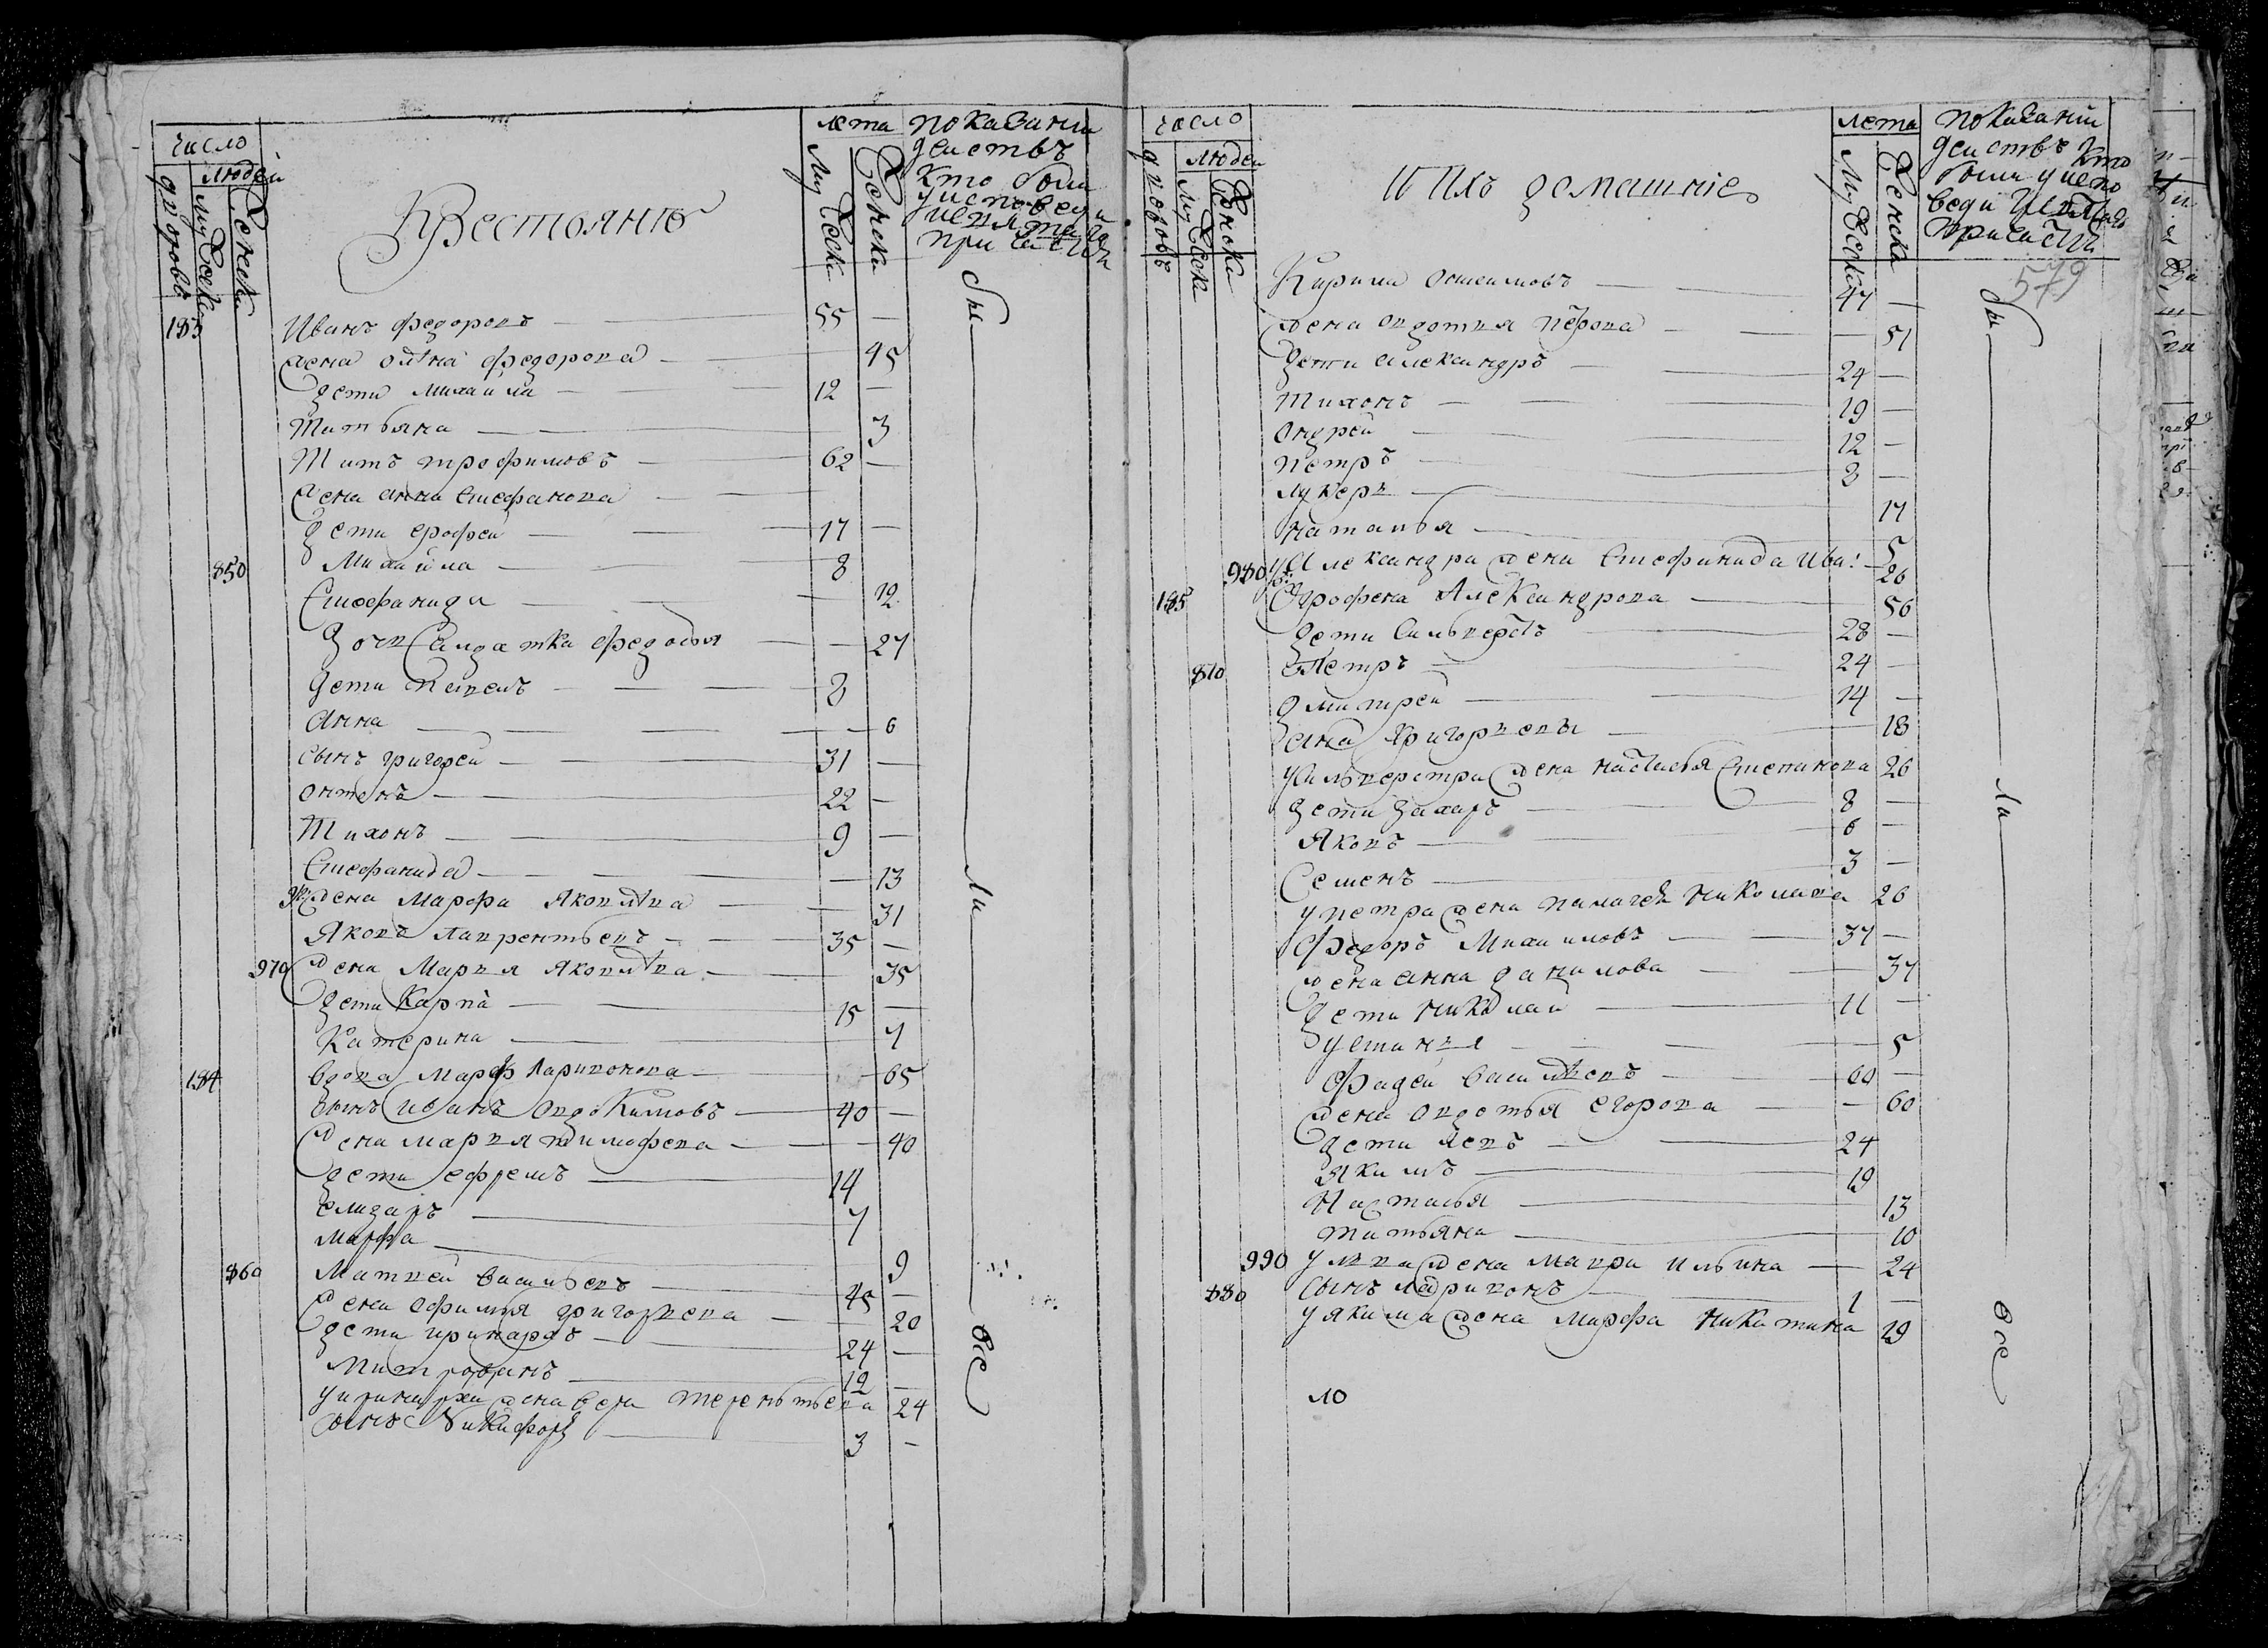 число
людей
дворовъ
мужеска
женска
Крестьянѣ
лета
мужеска
женска
показании
действъ
кто были
у исповеди
и святаго
причастия
183 Иванъ федоровъ — 55 —
жена анна федорова — 45
дети михайла — 12 —
татьяна — 3
титъ трофимовъ — 62 —
жена анна стефанова —
дети ерофей — 17 —
850 михайла — 8
стефанида 12
дочь салдатка федосья — 27
дети 8
анна — 6
сынъ григорей — 31 —
антонъ — 22 —
тихонъ — 9 —
стефанида — 13
жена марфа яковлва — 31
яковъ лаврентьевъ — 35 —
970 жена мария яковлва — 35
дети карпъ — 15 —
катерина — 7
184 вдова марфа ларивонова — 65
сынъ иванъ овдокимовъ — 40 —
жена мария тимофева — 40
дети ефремъ — 14
елизаръ — 7
марфа — 9
860 матвей васильевъ — 45 —
жена офимья григорьева — 20
дети иринархъ — 24 —
митрофанъ — 12 —
у иринарха жена вера терентьева 24
сынъ никифоръ — 3 —
бы
ли
все
число
людей
дворовъ
мужеска
женска
и ихъ домашние
лета
мужеска
женска
показании
действъ кто
были у испо
веди и святаго
причастия
579
Кирила 47 —
жена овдотья петрова — 51
дети александръ — 24 —
тихонъ — 19 —
андрей — 12 —
петръ — 8 —
лукеря — 17
наталья — 5
980 у александра жена стефанида ива: 26
185 Агрофена александрова — 56
дети сильверстъ — 28 —
870 петръ — 24 —
дмитрей — 14 —
анна григорьева — 18
у сильверстра жена настасья степанова 26
дети захаръ — 8 —
яковъ — 6 —
семенъ — 3 —
у петра жена палагея николаева 26
федоръ михаиловъ — 37 —
жена анна данилова — 37
дети николай — 11 —
устинья — 5
фадей васильевъ — 60 —
жена овдотья егорова — 60
дети левъ — 24
якимъ — 19
настасья — 13
татьяна — 10
990 у льва жена мавра ильина — 24
880 сынъ ларивонъ — 1 —
у якима жена марфа никитина 19
10
бы
ли
все